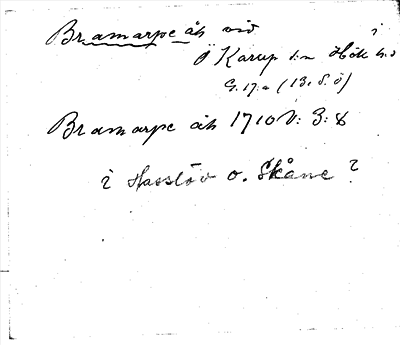 Bramarpe åh vid
Ö Karup s:n Hök h:d
G. 17:a (13. S. Ö)
Bramarpe åh 1710 V: 3: 8
i Hasslöv o. Skåne?